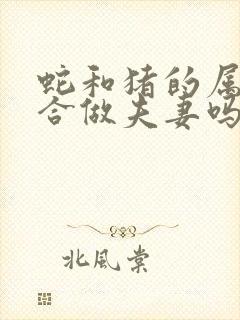 蛇和猪的属
合做夫妻吗
北風棠